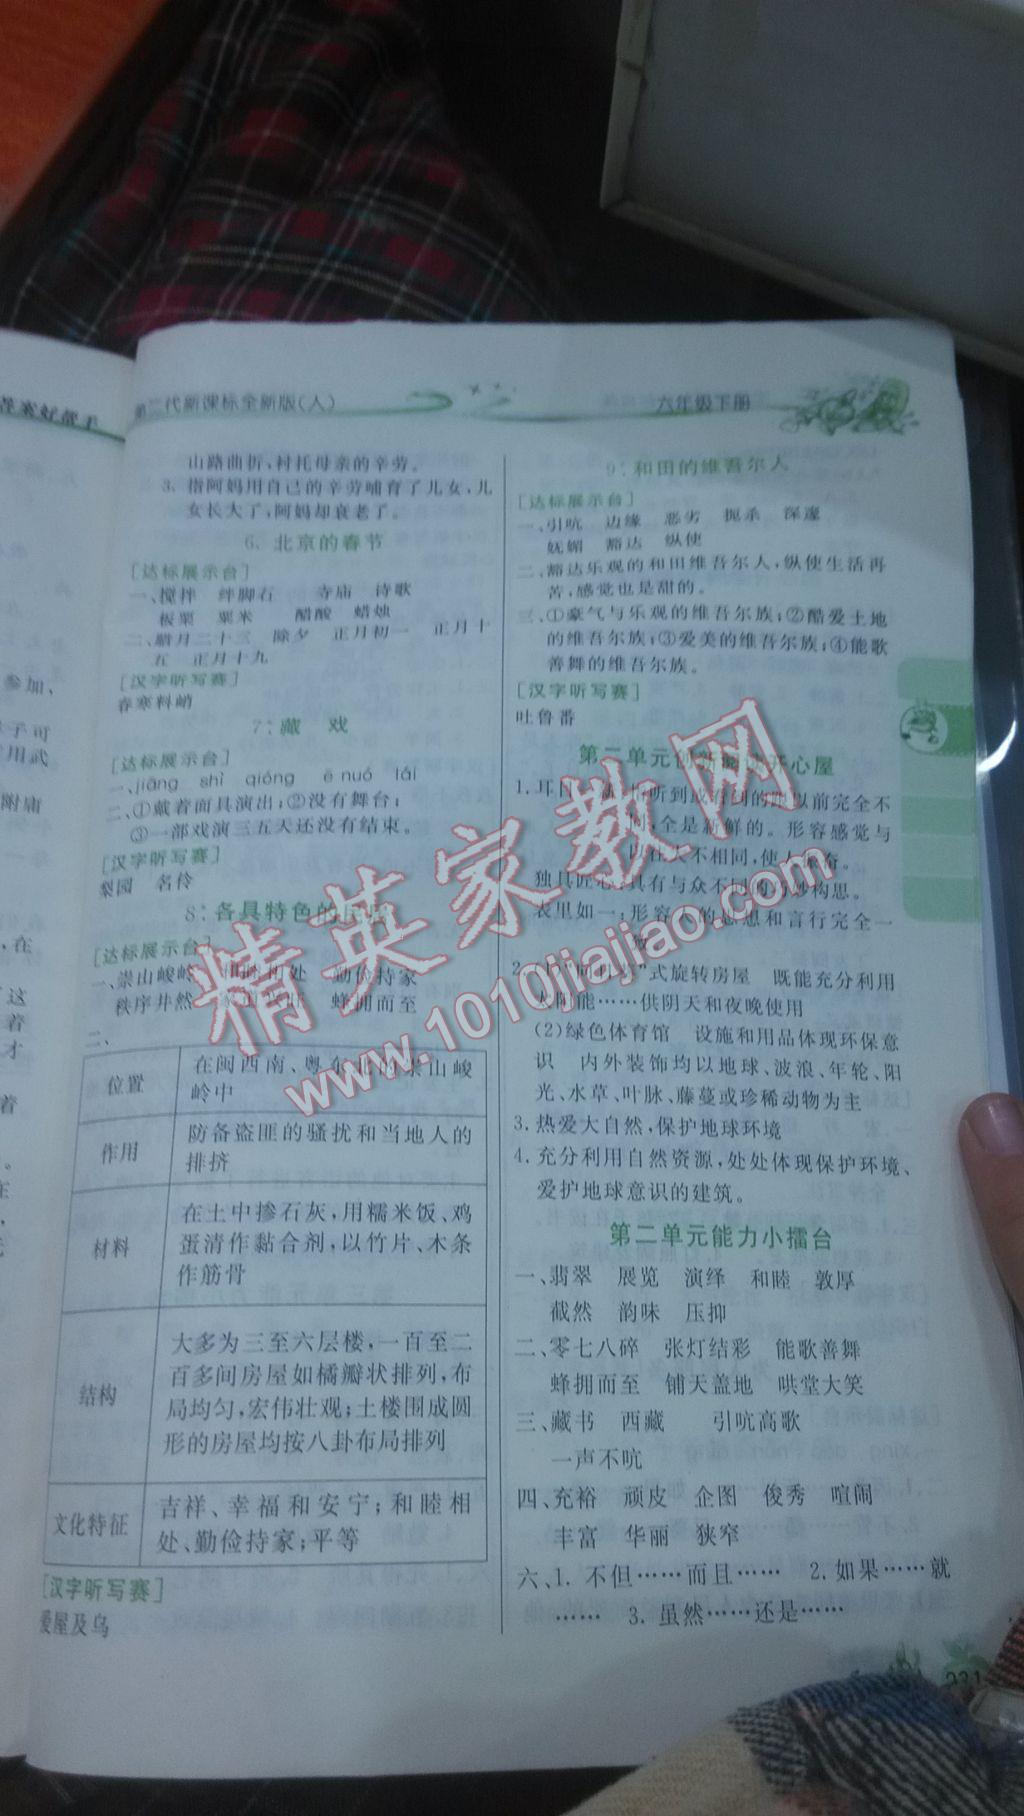 答案好帮手
第二代新课标全新版(人)
六年级下册
参加、
子可
用武
附庸
,在
这
着
才
着
。
在
,
元
山路曲折,衬托母亲的辛劳。
3. 指阿妈用自己的辛劳哺育了儿女,儿
女长大了,阿妈却衰老了。
6. 北京的春节
[达标展示台]
一、搅拌 绊脚石 寺庙 诗歌
板栗 粟米 醋酸 蜡烛
二、腊月二十三 除夕 正月初一 正月十
五 正月十九
[汉字听写赛]
春寒料峭
7. 藏 戏
[达标展示台]
一、jiāng shì qióng ē nuó lái
二、①戴着面具演出;②没有舞台;
③一部戏演三五天还没有结束。
[汉字听写赛]
梨园 名伶
8. 各具特色的民居
[达标展示台]
一、崇山峻岭 和睦相处 勤俭持家
秩序井然 家道兴旺 蜂拥而至
二、
位置
在闽西南、粤东北的崇山峻
岭中
作用
防备盗匪的骚扰和当地人的
排挤
材料
在土中掺石灰,用糯米饭、鸡
蛋清作黏合剂,以竹片、木条
作筋骨
结构
大多为三至六层楼,一百至二
百多间房屋如橘瓣状排列,布
局均匀,宏伟壮观;土楼围成圆
形的房屋均按八卦布局排列
文化特征
吉祥、幸福和安宁;和睦相
处、勤俭持家;平等
[汉字听写赛]
爱屋及乌
9. 和田的维吾尔人
[达标展示台]
一、引吭 边缘 恶劣 扼杀 深邃
妩媚 豁达 纵使
二、豁达乐观的和田维吾尔人,纵使生活再
苦,感觉也是甜的。
三、①豪气与乐观的维吾尔族;②酷爱土地
的维吾尔族;③爱美的维吾尔族;④能歌
善舞的维吾尔族。
[汉字听写赛]
吐鲁番
第二单元创新阅读开心屋
1. 耳目一新:指听到或看到的跟以前完全不
同,全是新鲜的。形容感觉与
以往大不相同,使人振奋。
独具匠心:具有与众不同的巧妙构思。
表里如一:形容人的思想和言行完全一
致。
2. (1)“向日葵”式旋转房屋 既能充分利用
太阳能……供阴天和夜晚使用
(2)绿色体育馆 设施和用品体现环保意
识 内外装饰均以地球、波浪、年轮、阳
光、水草、叶脉、藤蔓或珍稀动物为主
3. 热爱大自然,保护地球环境
4. 充分利用自然资源,处处体现保护环境、
爱护地球意识的建筑。
第二单元能力小擂台
一、翡翠 展览 演绎 和睦 敦厚
截然 韵味 压抑
二、零七八碎 张灯结彩 能歌善舞
蜂拥而至 铺天盖地 哄堂大笑
三、藏书 西藏 引吭高歌
一声不吭
四、充裕 顽皮 企图 俊秀 喧闹
丰富 华丽 狭窄
六、1. 不但……而且…… 2. 如果……就
…… 3. 虽然……还是……
221
精英家教网
www.1010jiajiao.com